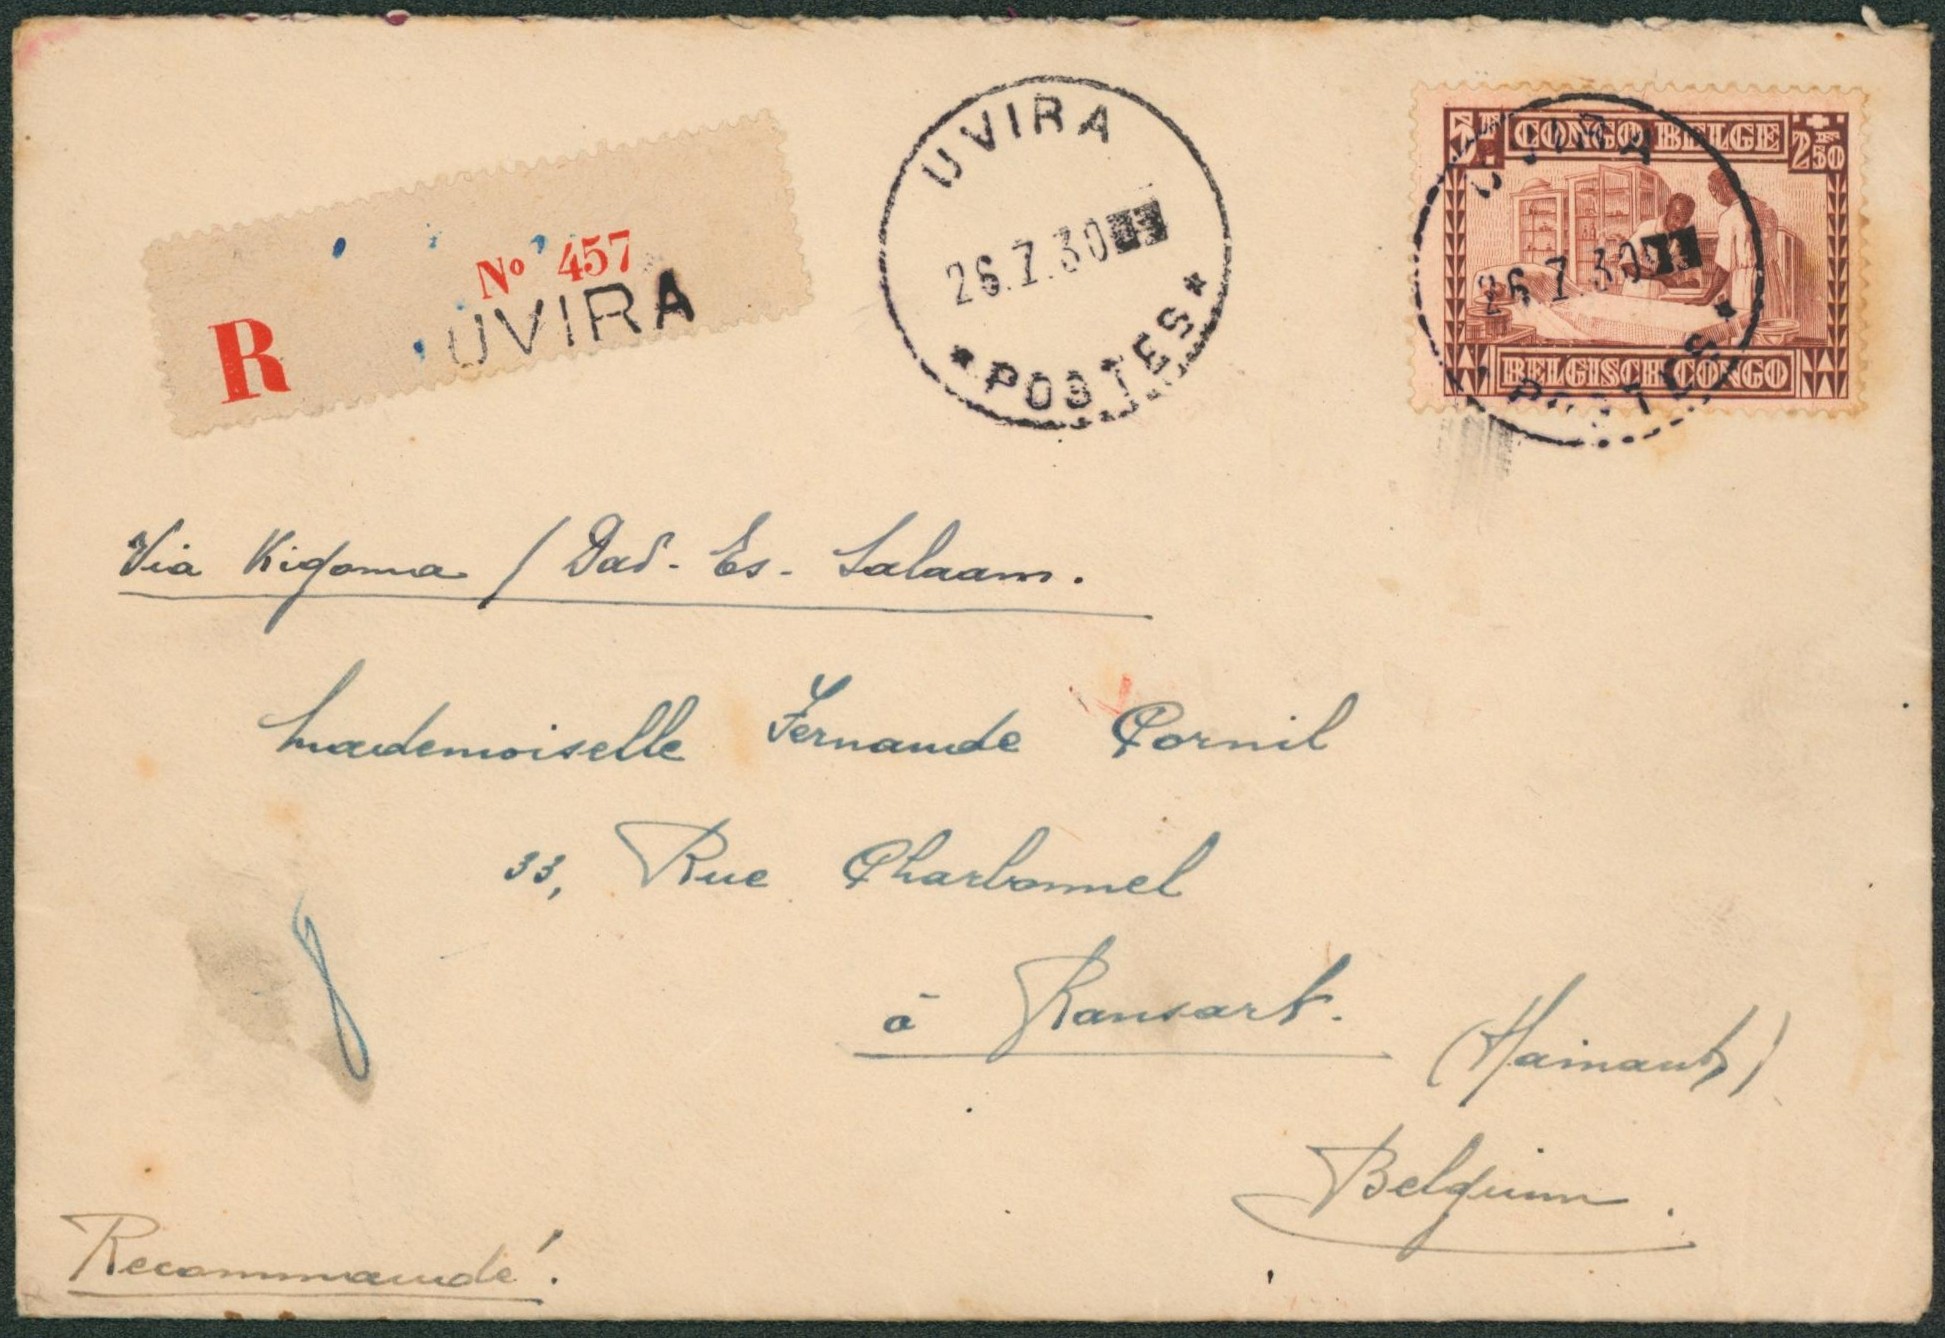 UVIRA
26.7.30
* POSTES *
5F CONGO BELGE 2F50
UVIRA
26.7.30
BELGISCH CONGO
POSTES *
No 457
R UVIRA
Via Kigoma / Dar-Es-Salaam.
Mademoiselle Fernande Cornil
33, Rue Charbonnel
à Ransart.
(Hainaut)
Belgium.
Recommandé.